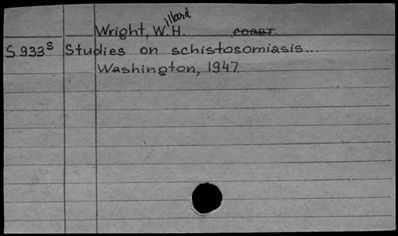 Wright, Willard H. coast.
S 933s Studies on schistosomiasis...
Washington, 1947.